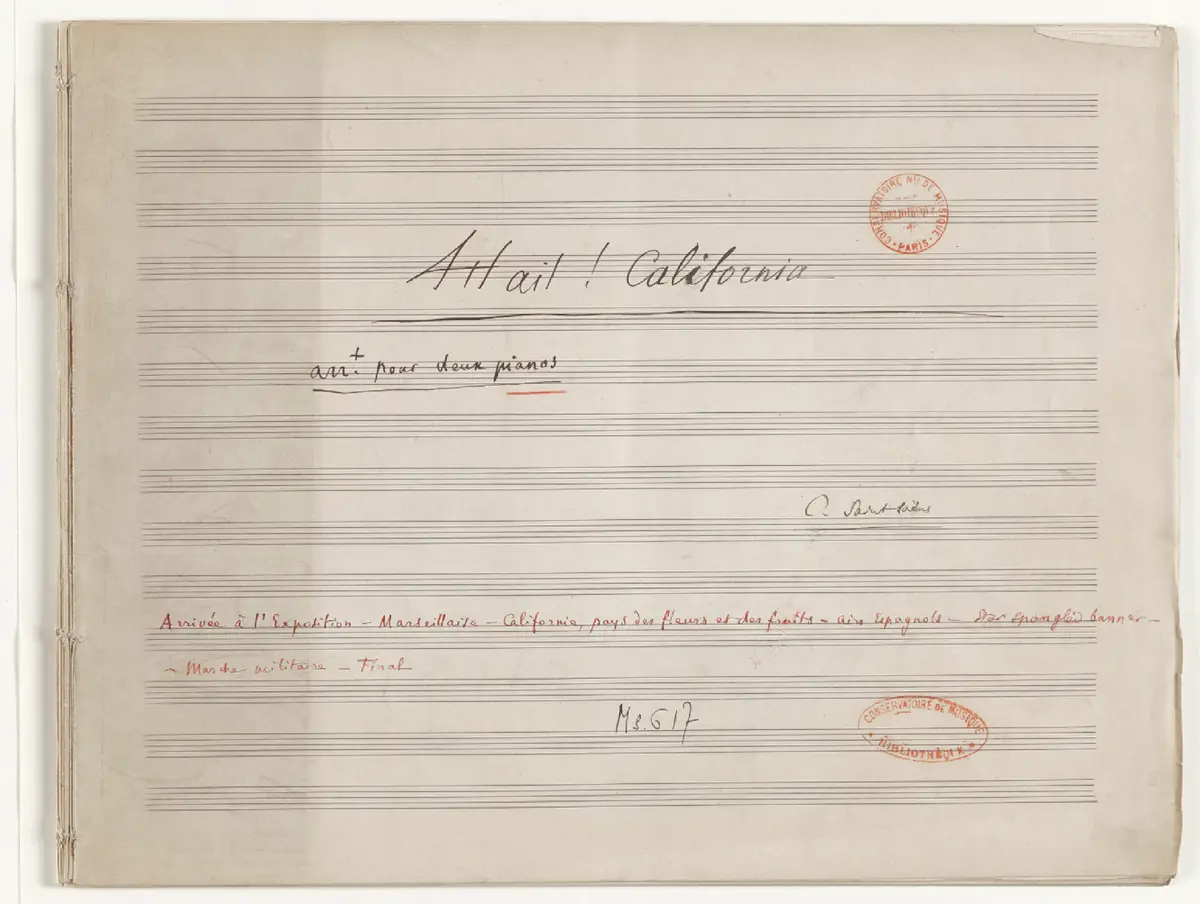 CONSERVATOIRE Nal DE MUSIQUE
BIBLIOTHÈQUE
PARIS
Hail ! California
arrt. pour deux pianos
C. Saint-Saëns
Arrivée à l'Exposition – Marseillaise – Californie, pays des fleurs et des fruits – airs Espagnols – Star Spangled banner –
– Marche militaire – Final
Ms. 617
CONSERVATOIRE DE MUSIQUE
BIBLIOTHÈQUE